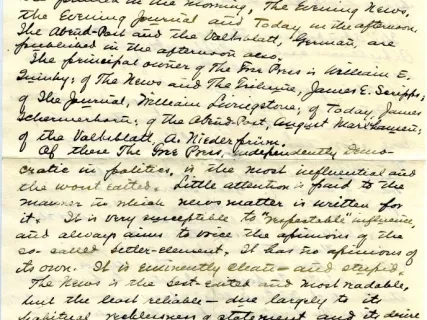 in the morning, The Evening News,
the Evening Journal and Today in the afternoon,
The Abend-Post and the Volksblatt, German, are
published in the afternoon also.
The principal owner of the Free Press is William E.
Quinby; of The News and The Tribune, James E. Scripps;
of The Journal, William Livingstone; of Today, James
Schermerhorn; of the Abend-Post, August Marxhausen;
of the Volksblatt, A.
Of these The Free Press, independently Demo-
cratic in politics, is the most influential and
the worst edited. Little attention is paid to the
manner in which news matter is written for
it. It is very susceptible to "respectable" influence,
and always aims to voice the opinions of the
so called better-element. It has no opinions of
its own. It is eminently clean - and stupid.
The News is the best edited and most readable,
but the least reliable - due largely to its
habitual recklessness of statement and its desire